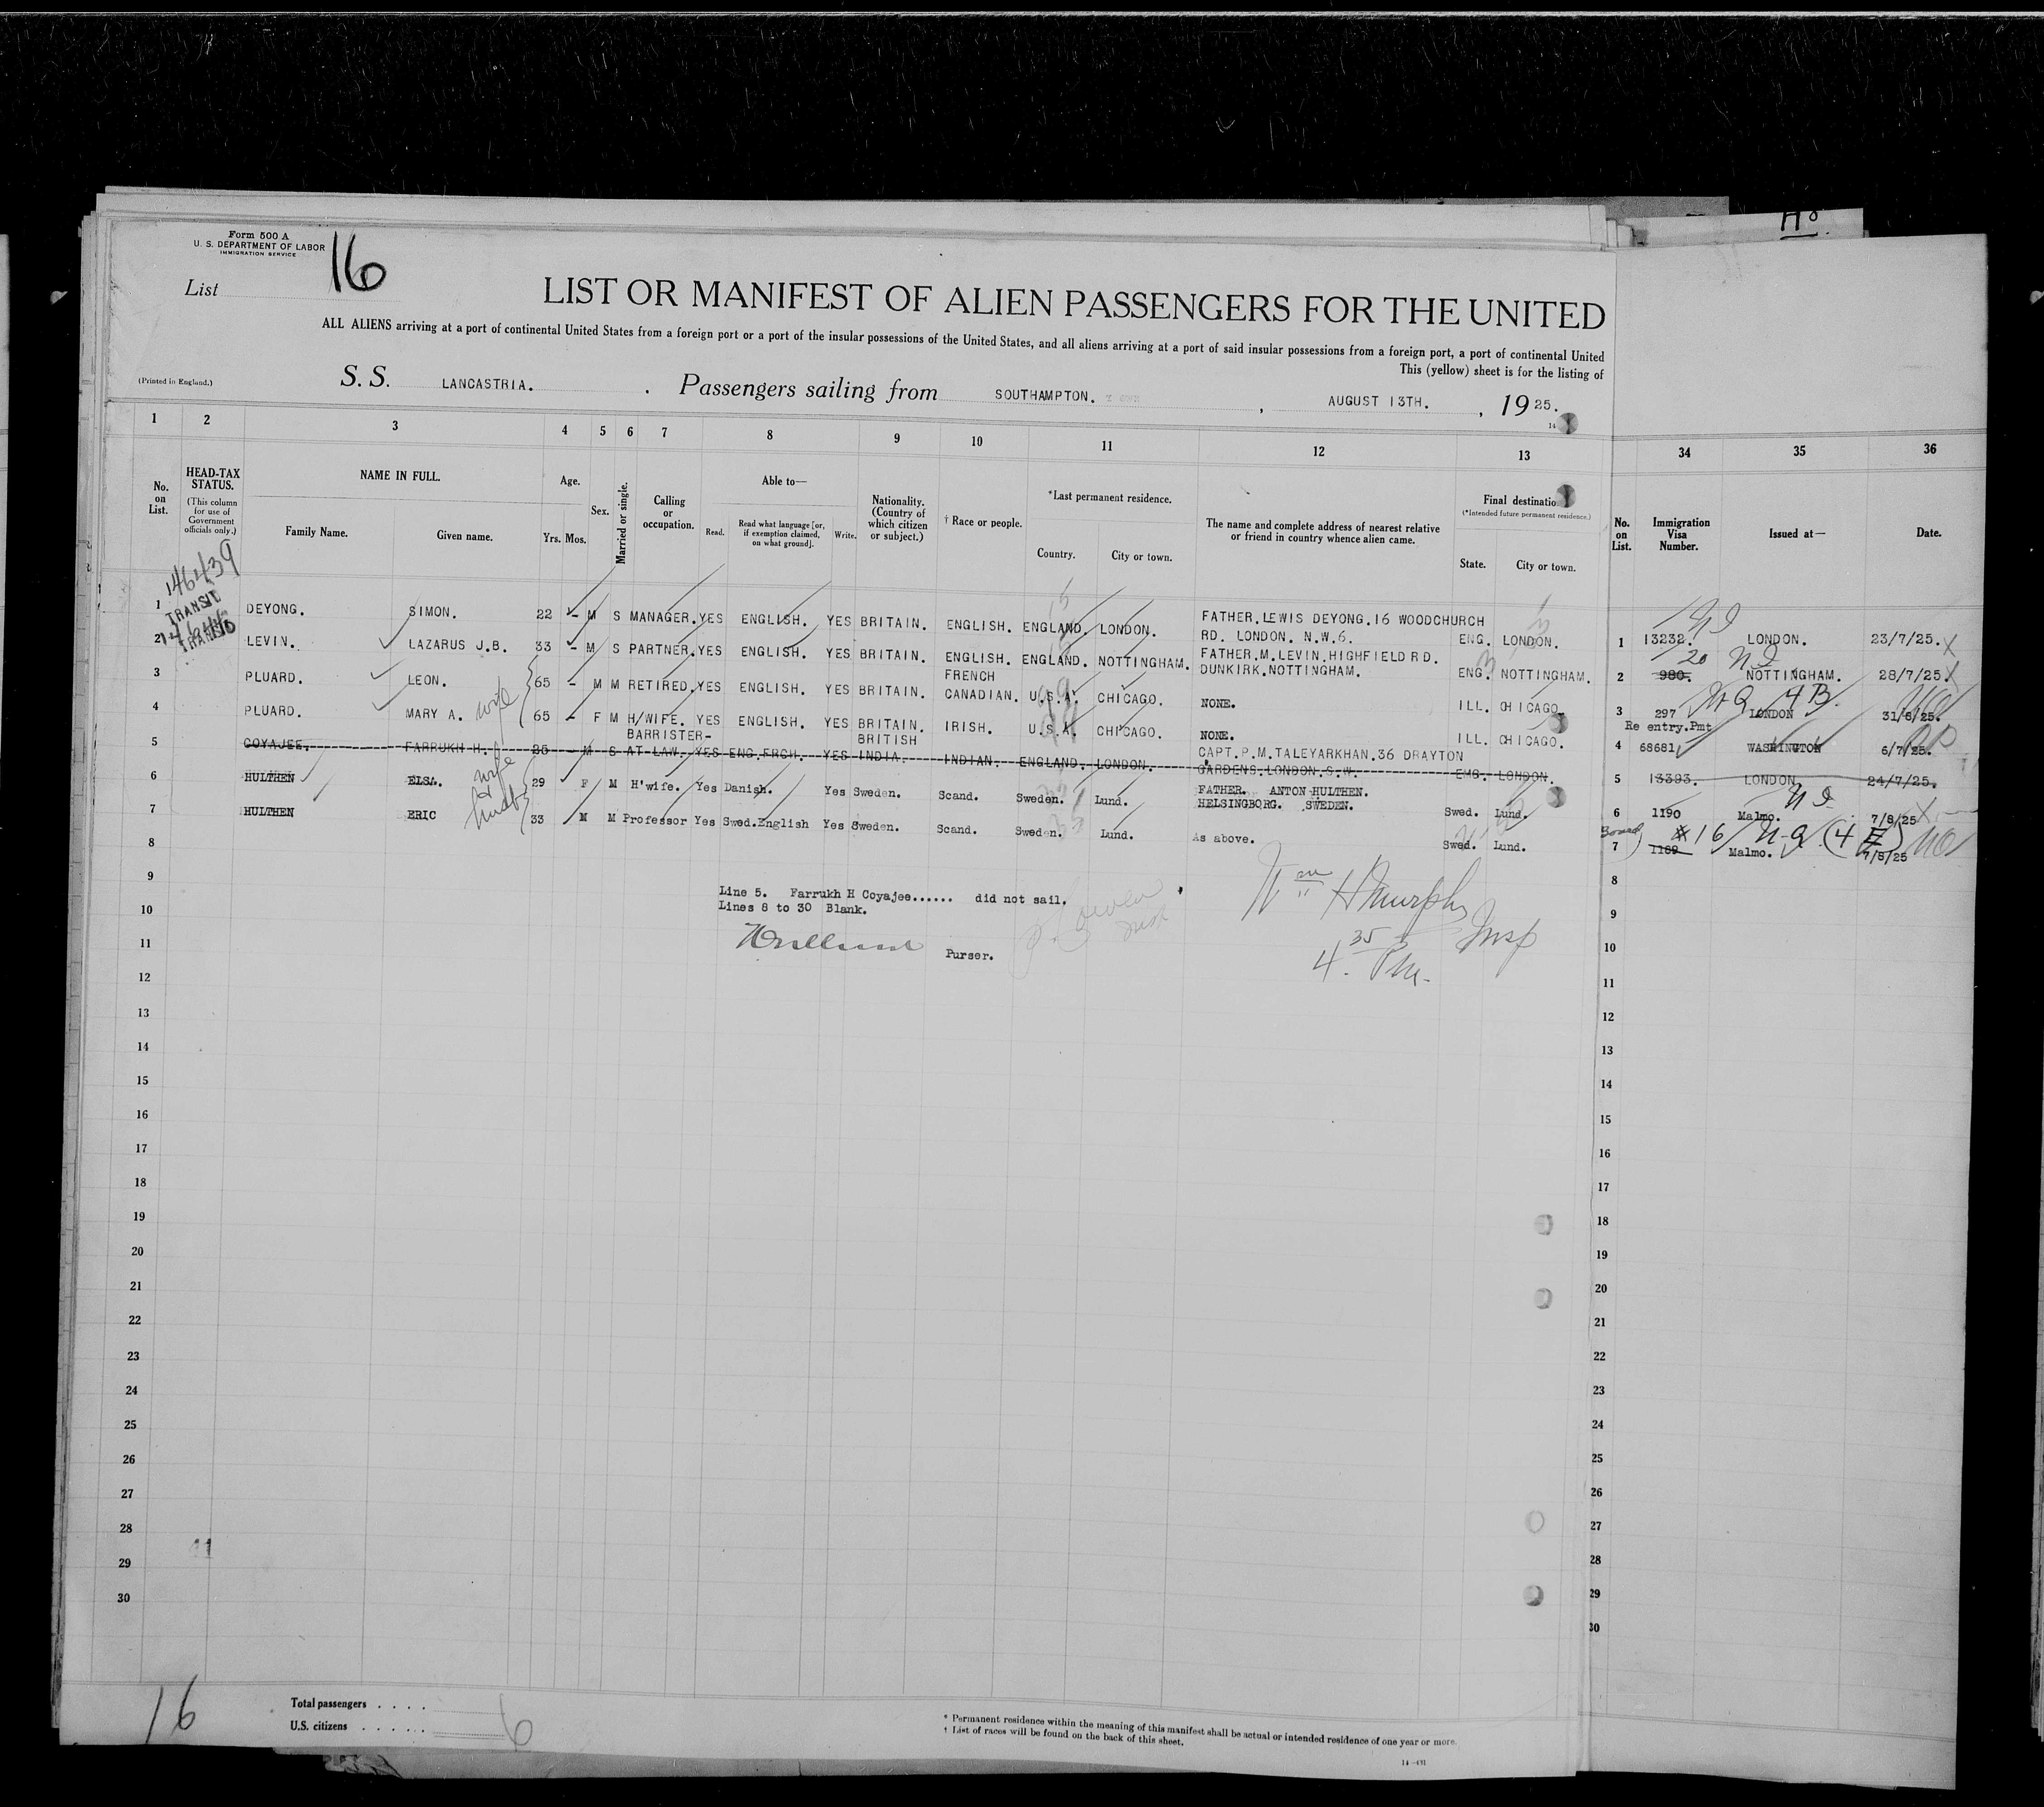 H8.
Form 500 A
U. S. DEPARTMENT OF LABOR
IMMIGRATION SERVICE
List 16
LIST OR MANIFEST OF ALIEN PASSENGERS FOR THE UNITED
ALL ALIENS arriving at a port of continental United States from a foreign port or a port of the insular possessions of the United States, and all aliens arriving at a port of said insular possessions from a foreign port, a port of continental United
This (yellow) sheet is for the listing of
(Printed in England.) S. S. LANCASTRIA. . Passengers sailing from SOUTHAMPTON. , AUGUST 13TH. , 19 25.
1 2 3 4 5 6 7 8 9 10 11 12 13 34 35 36
No. on List.
HEAD-TAX STATUS.
(This column for use of Government officials only.)
NAME IN FULL.
Family Name. Given name.
Age.
Yrs. Mos.
Sex.
Married or single.
Calling or occupation.
Able to—
Read. Read what language [or, if exemption claimed, on what ground]. Write.
Nationality. (Country of which citizen or subject.)
† Race or people.
*Last permanent residence.
Country. City or town.
The name and complete address of nearest relative or friend in country whence alien came.
Final destinatio
(*Intended future permanent residence.)
State. City or town.
No. on List. Immigration Visa Number. Issued at— Date.
146439
TRANSIT
1 DEYONG. SIMON. 22 - M S MANAGER. YES ENGLISH. YES BRITAIN. ENGLISH. ENGLAND. LONDON. FATHER.LEWIS DEYONG.16 WOODCHURCH RD. LONDON. N.W.6. ENG. LONDON. 1 13232. LONDON. 23/7/25. X
TRANSIT
2 LEVIN. LAZARUS J.B. 33 - M S PARTNER. YES ENGLISH. YES BRITAIN. ENGLISH. ENGLAND. NOTTINGHAM. FATHER.M.LEVIN.HIGHFIELD RD. DUNKIRK.NOTTINGHAM. ENG. NOTTINGHAM. 2 980. 20 NOTTINGHAM. 28/7/25. X
3 PLUARD. LEON. 65 - M M RETIRED. YES ENGLISH. YES BRITAIN. FRENCH CANADIAN. U.S.A. CHICAGO. NONE. ILL. CHICAGO. 3 297 LONDON 31/6/25.
4 PLUARD. MARY A. wife 65 - F M H/WIFE. YES ENGLISH. YES BRITAIN. IRISH. U.S.A. CHICAGO. NONE. ILL. CHICAGO. 4 Re entry.Pmt 68681 WASHINGTON 6/7/25.
5 COYAJEE. FARRUKH H. 25 - M S BARRISTER-AT LAW. YES ENG.FRCH. YES BRITISH INDIA. INDIAN. ENGLAND. LONDON. CAPT.P.M.TALEYARKHAN.36 DRAYTON GARDENS.LONDON.S.W. ENG. LONDON. 5 13393. LONDON. 24/7/25.
6 HULTHEN ELSA. wife 29 F M H'wife. Yes Danish. Yes Sweden. Scand. Sweden. Lund. FATHER. ANTON HULTHEN. HELSINGBORG. SWEDEN. Swed. Lund. 6 1190 Malmo. 7/8/25 X
7 HULTHEN ERIC husb 33 M M Professor Yes Swed.English Yes Sweden. Scand. Sweden. Lund. As above. Swed. Lund. 7 1189 16 Malmo. 7/8/25
8 8
9 9
Line 5. Farrukh H Coyajee...... did not sail.
10 10
Lines 8 to 30 Blank.
Wm H Murphy Insp
4.35 Pm.
11 11
Purser.
12 12
13 13
14 14
15 15
16 16
17 17
18 18
19 19
20 20
21 21
22 22
23 23
24 24
25 25
26 26
27 27
28 28
41
29 29
30 30
16
Total passengers . . . .
U.S. citizens . . . . . .
6
* Permanent residence within the meaning of this manifest shall be actual or intended residence of one year or more.
† List of races will be found on the back of this sheet.
14—431